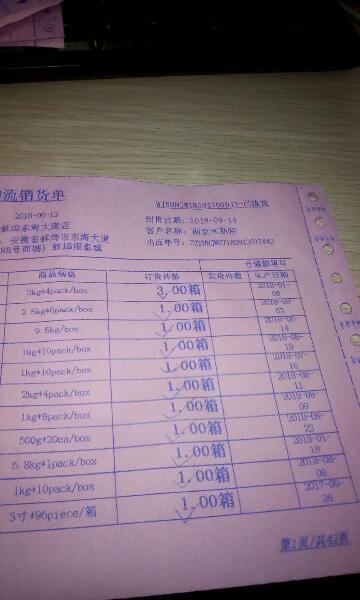 流销货单
2018-09-13
蚌埠东海大道店
到货日期：2018-09-14
安徽省蚌埠市东海大道
客户名称：南京
商铺）蚌埠
出库单号：
仓储部填写
商品规格 订货件数 发货件数 生产日期
2kg*4pack/box 3.00箱 2018-01-08
2.5kg*6pack/box 1.00箱
9.6kg/box 1.00箱
1kg*10pack/box 1.00箱
1kg*10pack/box 1.00箱
2kg*4pack/box 1.00箱 2018-08-11
1kg*8pack/box 1.00箱 2018-08-09
500g*20ea/box 1.00箱 2018-08-23
5.8kg*1pack/box 1.00箱 2018-01-18
1kg*10pack/box 1.00箱 2018-08-08
3寸*96piece/箱 1.00箱 2017-09-26
第1页/共42页